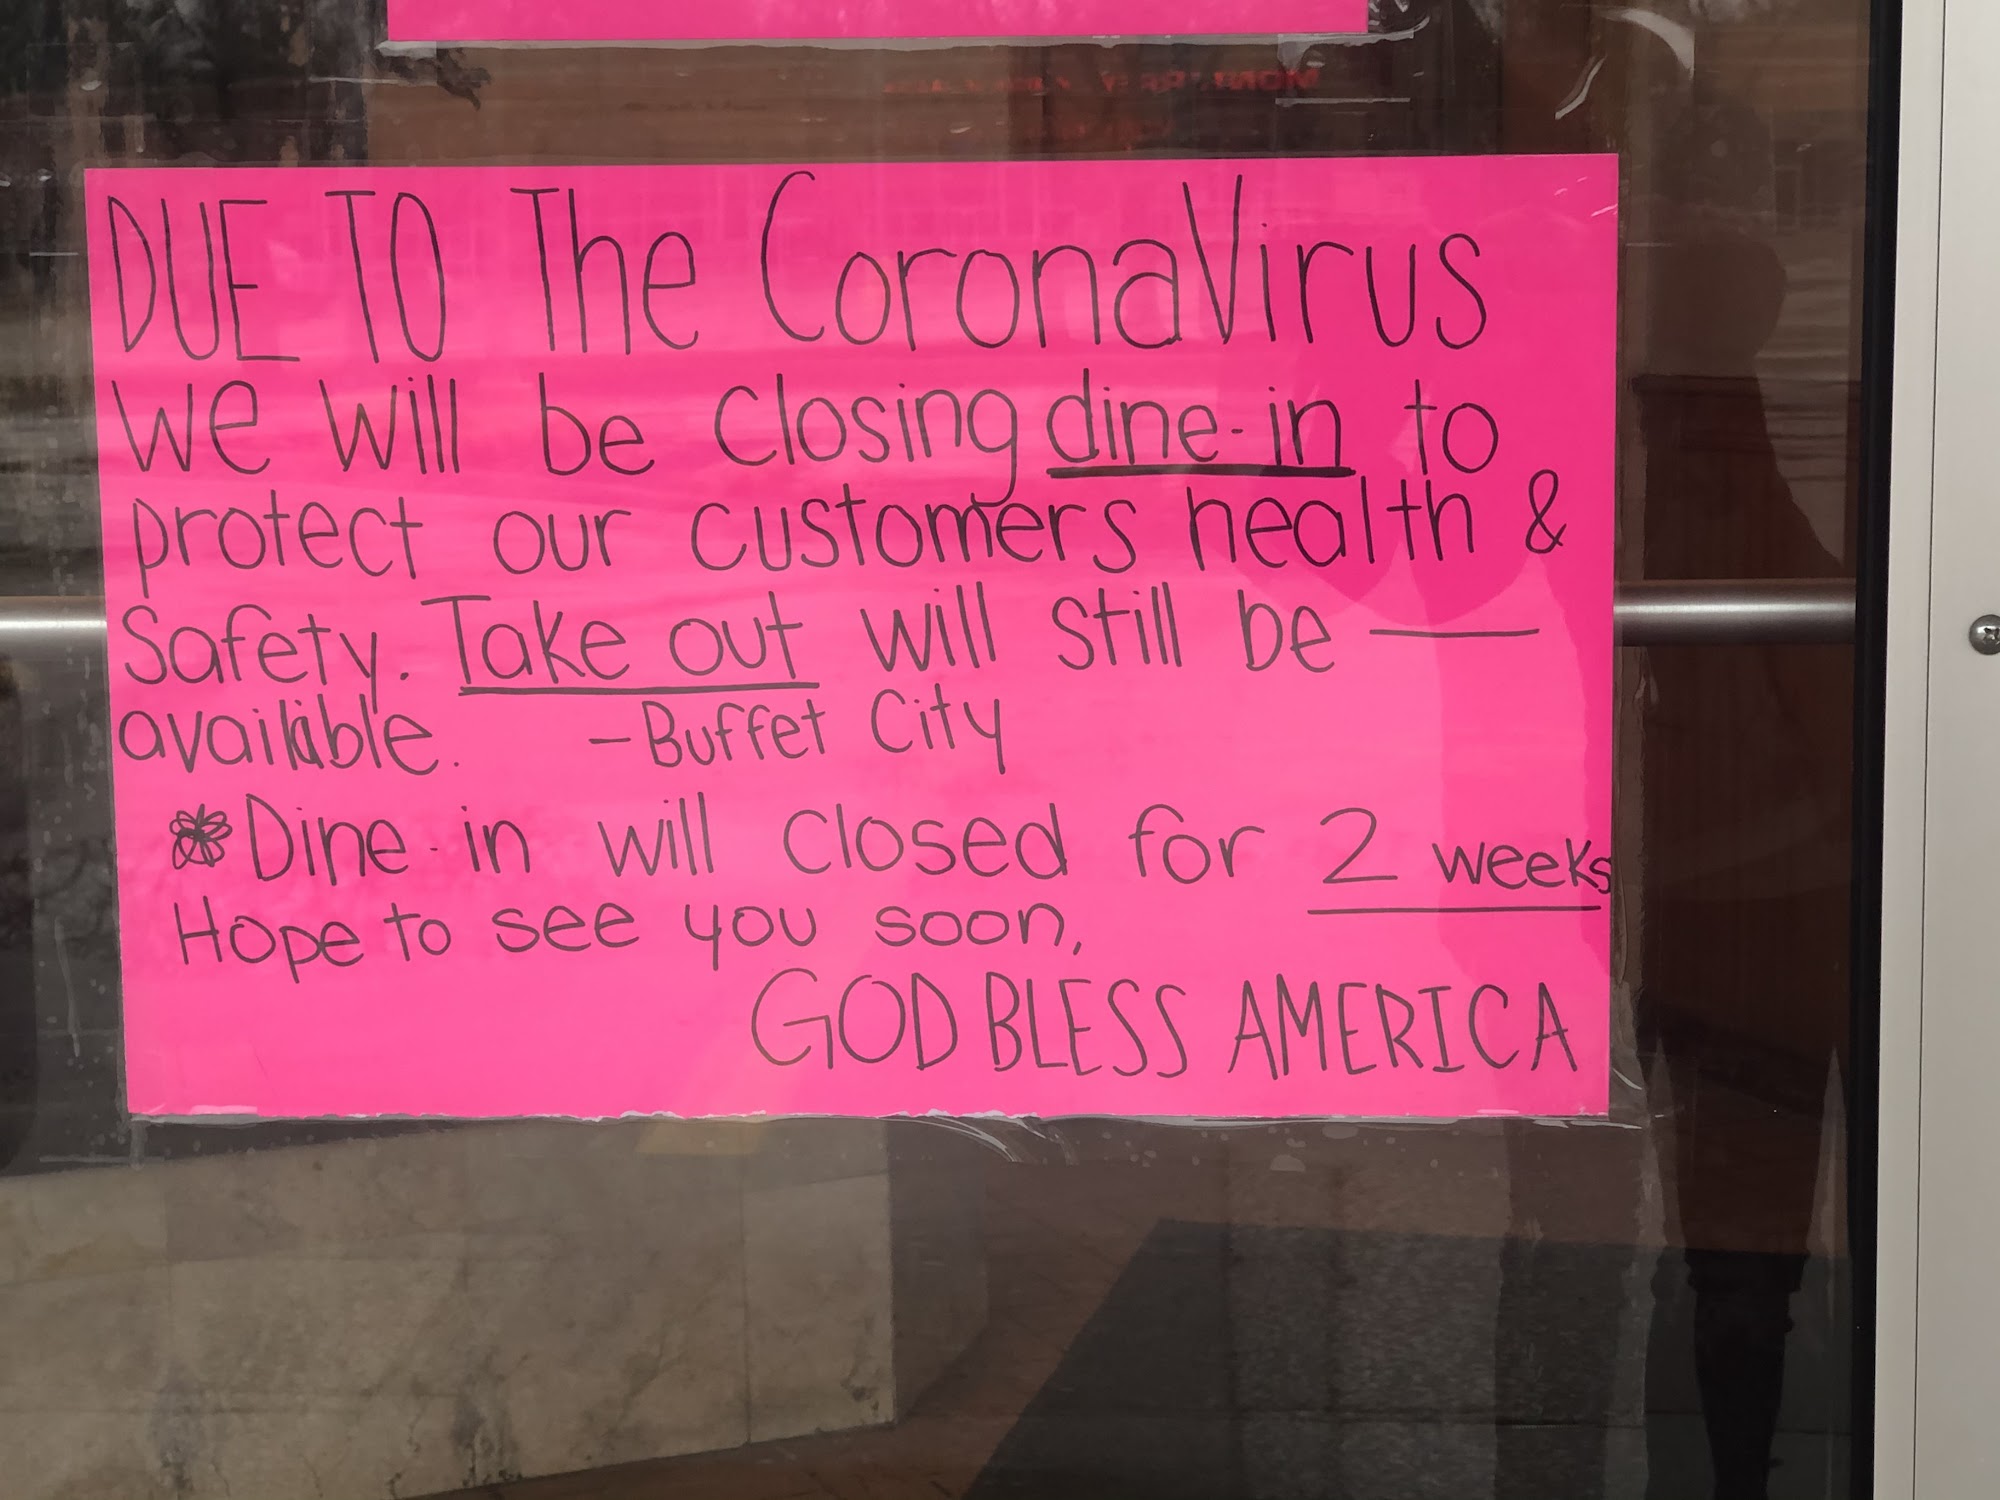 DUE TO The CoronaVirus
We will be closing dine-in to
protect our customers health &
Safety. Take out will still be —
available. -Buffet City
*Dine-in will closed for 2 weeks
Hope to see you soon,
GOD BLESS AMERICA